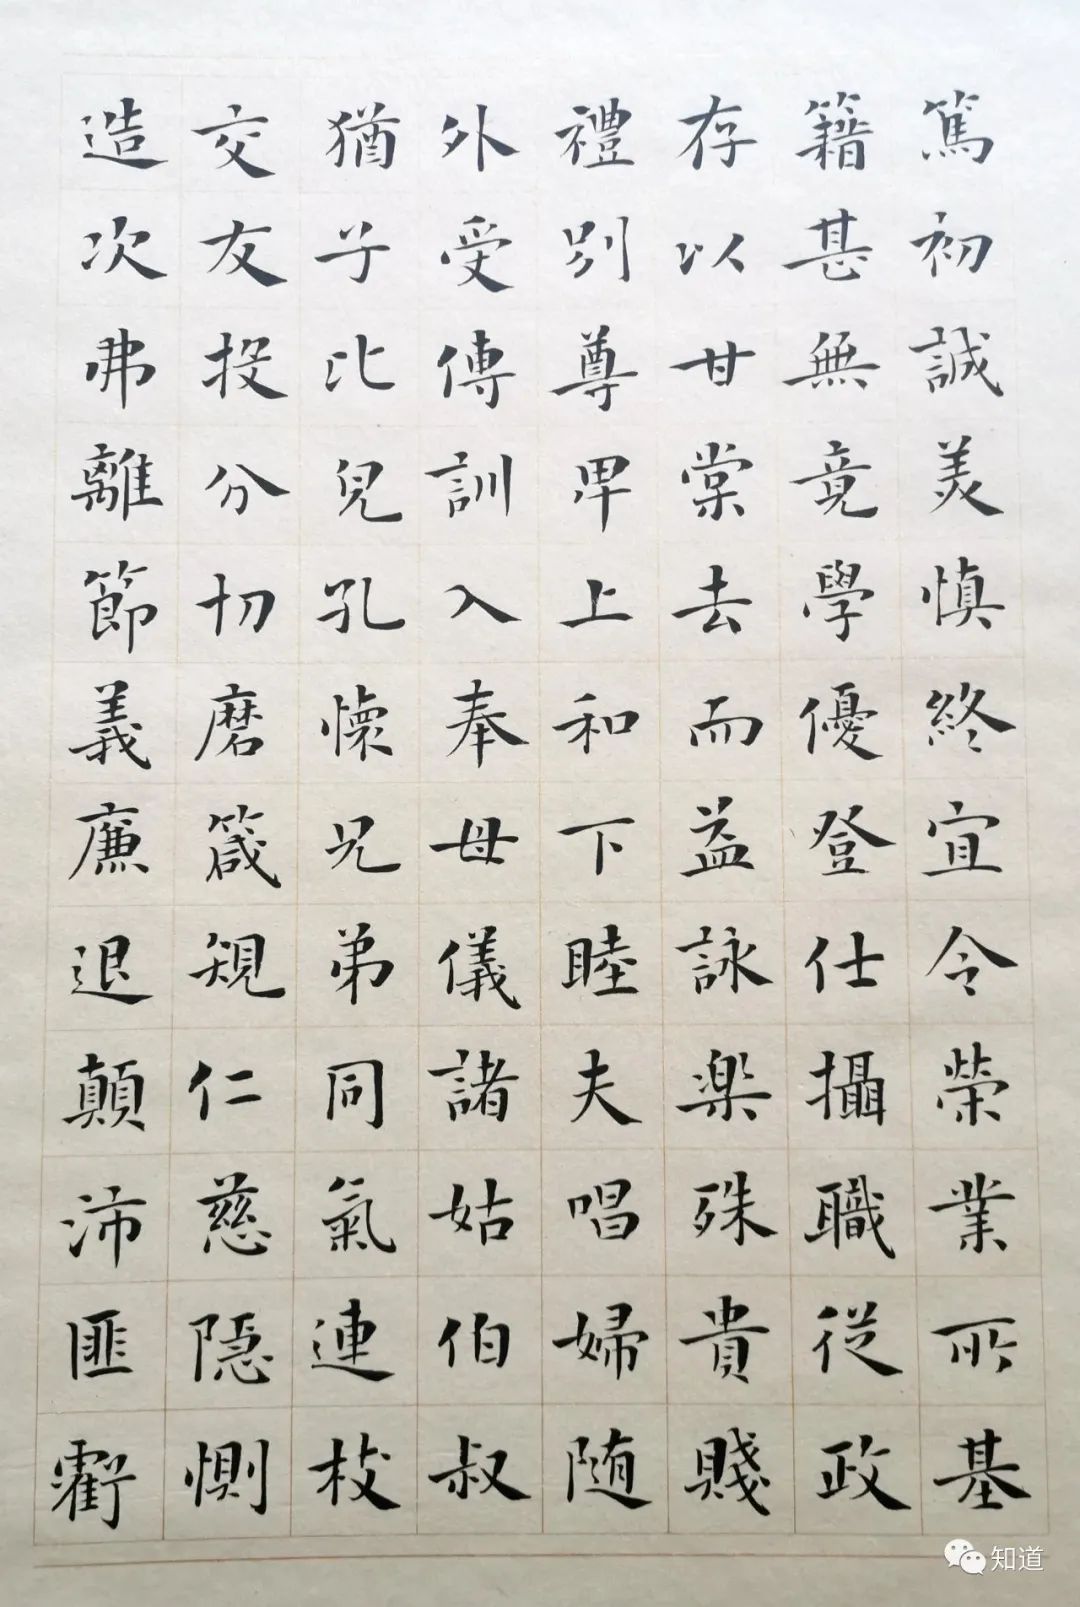 篤初誠美慎終宜令榮業所基
籍甚無竟學優登仕攝職從政
存以甘棠去而益詠樂殊貴賤
禮別尊卑上和下睦夫唱婦随
外受傅訓入奉母儀諸姑伯叔
猶子比兒孔懷兄弟同氣連枝
交友投分切磨箴規仁慈隱惻
造次弗離節義廉退顛沛匪虧
知道